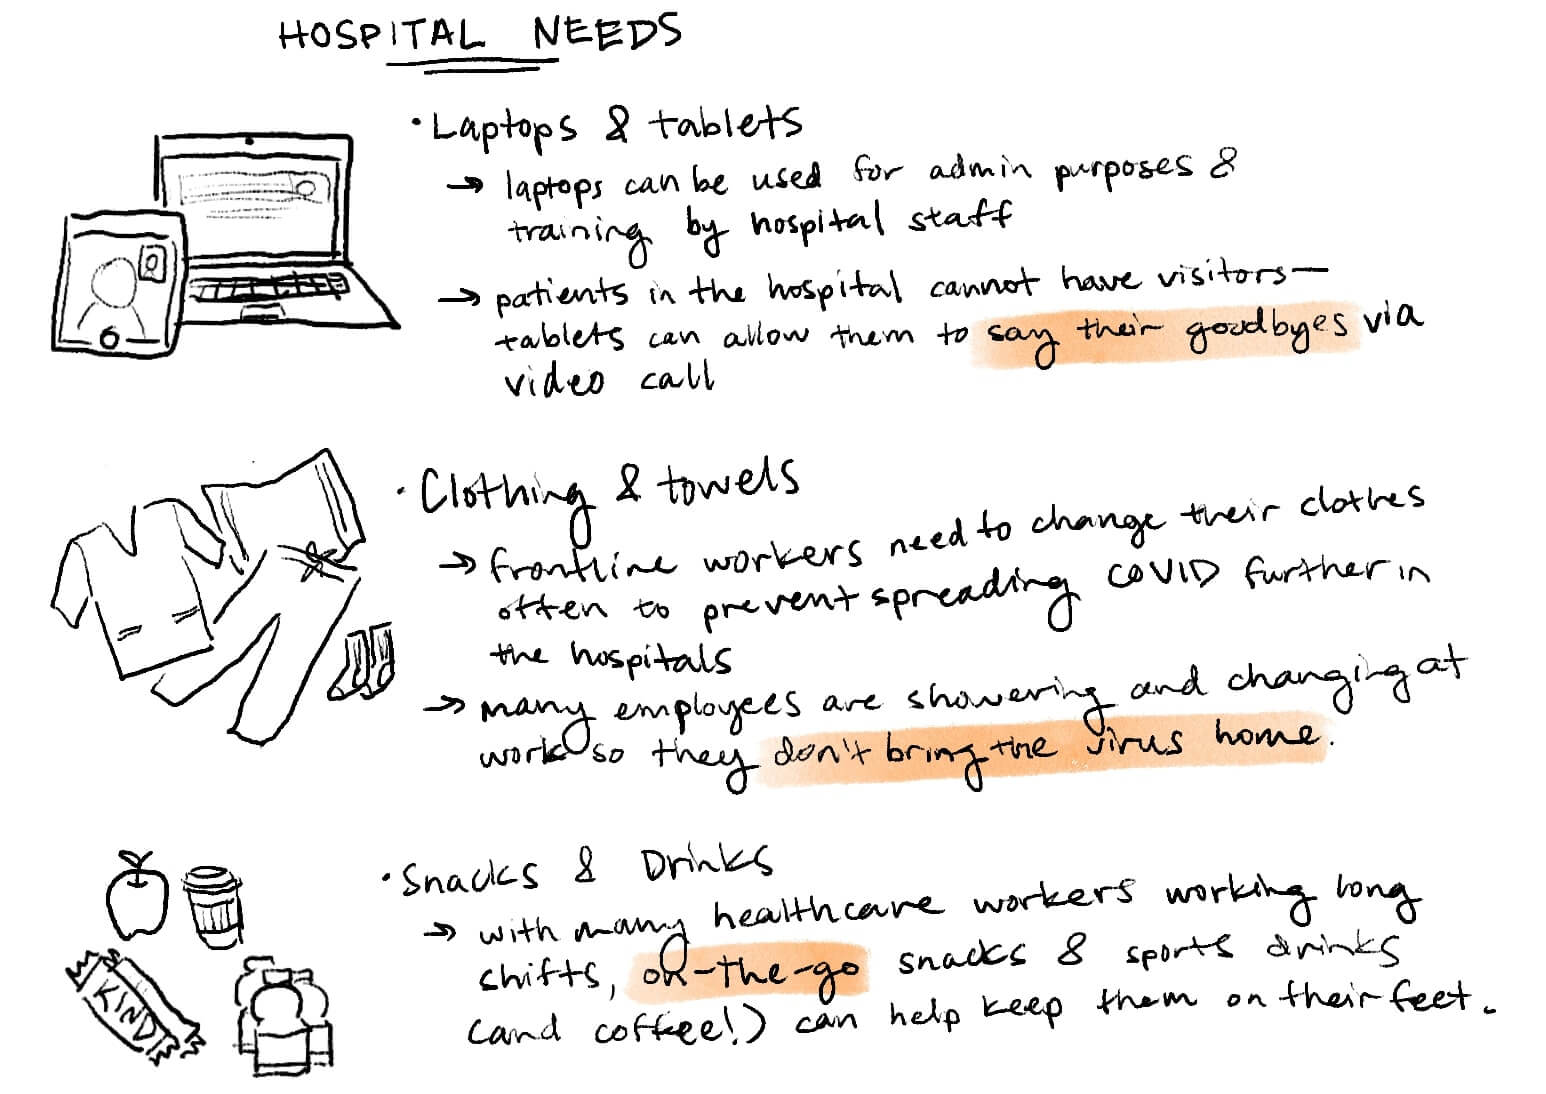 HOSPITAL NEEDS
• Laptops & tablets
→ laptops can be used for admin purposes &
training by hospital staff
→ patients in the hospital cannot have visitors—
tablets can allow them to say their goodbyes via
video call
• Clothing & towels
→ frontline workers need to change their clothes
often to prevent spreading COVID further in
the hospitals
→ many employees are showering and changing at
work so they don't bring the virus home.
• Snacks & Drinks
→ with many healthcare workers working long
shifts, on-the-go snacks & sports drinks
(and coffee!) can help keep them on their feet.
KIND